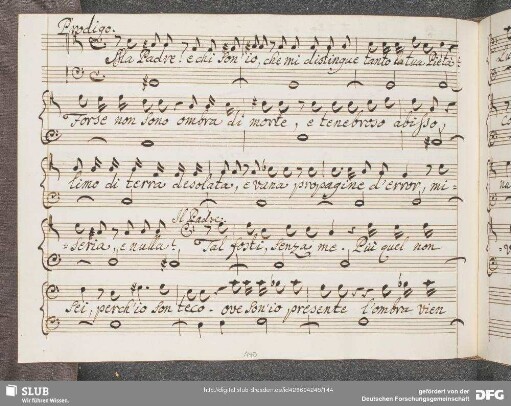 Prodigo.
Ma Padre! e chi son'io, che mi distingue tanto la tua Pietà:
Forse non sono ombra di morte, e tenebroso abisso,
limo di terra desolata, e vana propagine d'error, mi=
=seria, e nulla!,
Il Padre.
Tal fosti, senza me. Più quel non
sei, perch'io son teco. ove son'io presente l'ombra vien
SLUB
Wir führen Wissen.
gefördert von der
Deutschen Forschungsgemeinschaft
DFG